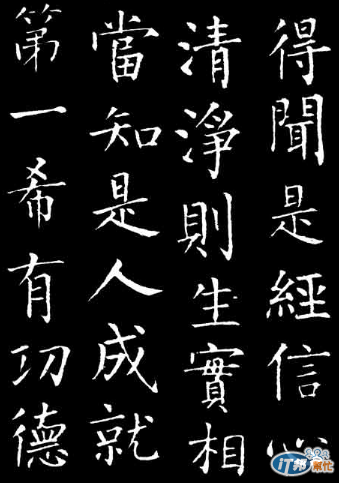 得聞是經信心
清淨則生實相
當知是人成就
第一希有功德
iT邦幫忙